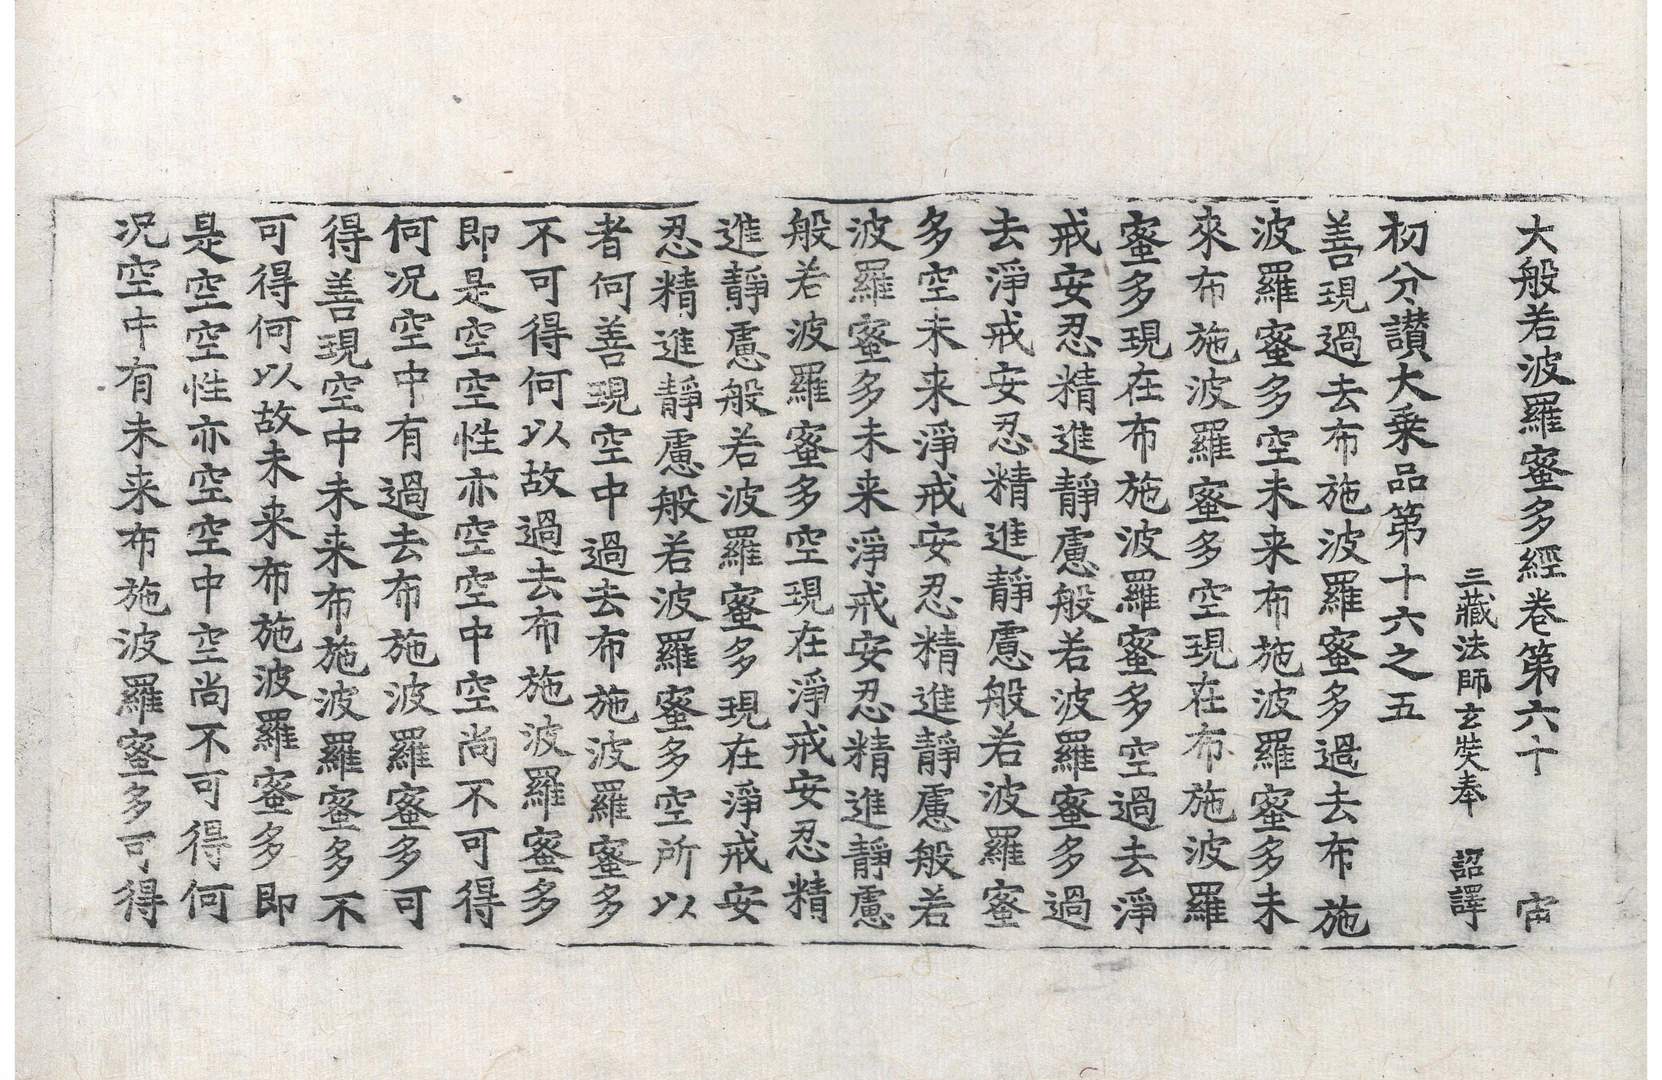 大般若波羅蜜多經卷第六十　宙
三藏法師玄奘奉　詔譯
初分讃大乗品第十六之五
善現過去布施波羅蜜多過去布施
波羅蜜多空未来布施波羅蜜多未
來布施波羅蜜多空現在布施波羅
蜜多現在布施波羅蜜多空過去淨
戒安忍精進靜慮般若波羅蜜多過
去淨戒安忍精進靜慮般若波羅蜜
多空未来淨戒安忍精進靜慮般若
波羅蜜多未来淨戒安忍精進靜慮
般若波羅蜜多空現在淨戒安忍精
進靜慮般若波羅蜜多現在淨戒安
忍精進靜慮般若波羅蜜多空所以
者何善現空中過去布施波羅蜜多
不可得何以故過去布施波羅蜜多
即是空空性亦空空中空尚不可得
何况空中有過去布施波羅蜜多可
得善現空中未来布施波羅蜜多不
可得何以故未来布施波羅蜜多即
是空空性亦空空中空尚不可得何
况空中有未来布施波羅蜜多可得